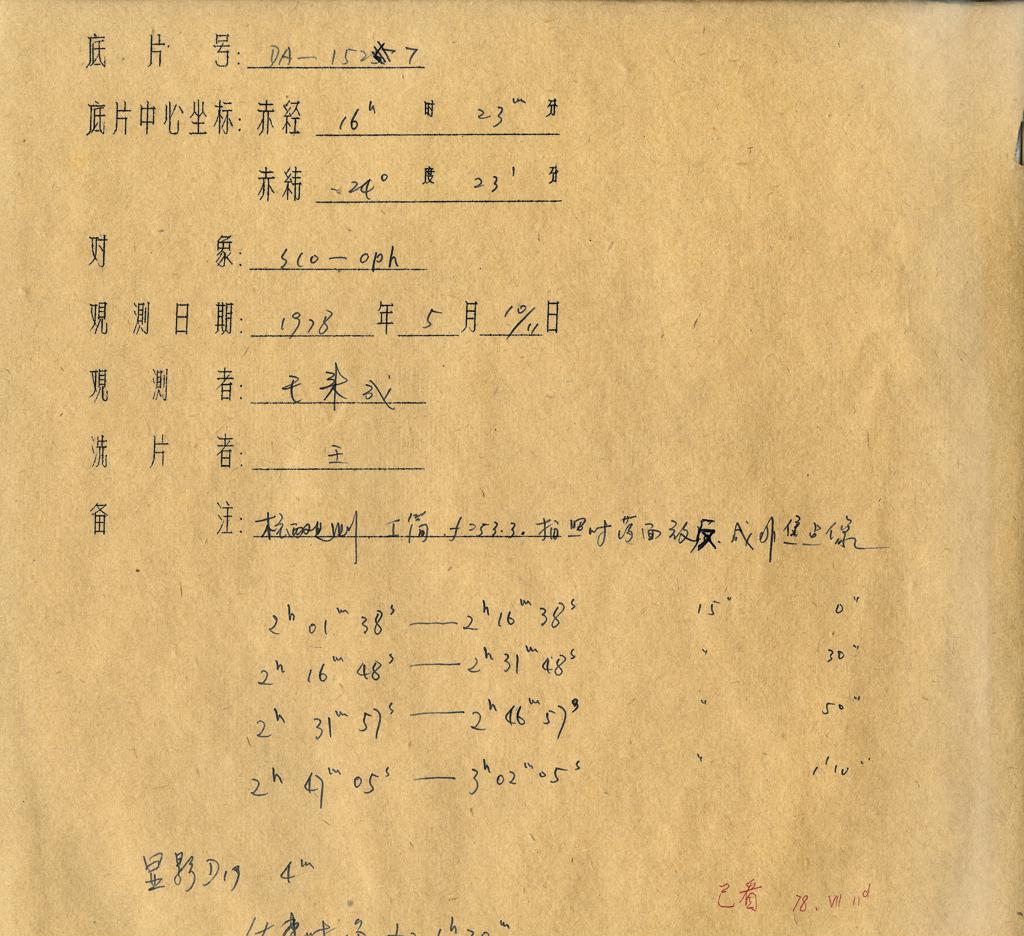 底片号: DA—1527
底片中心坐标: 赤经 16ʰ 时 23ᵐ 分
赤纬 -24° 度 23' 分
对象: sco—oph
观测日期: 1978 年 5 月 10/11 日
观测者: 王
洗片者: 王
备注: f=253.3. 拍照时 成 像
2ʰ 01ᵐ 38ˢ — 2ʰ 16ᵐ 38ˢ 15" 0"
2ʰ 16ᵐ 48ˢ — 2ʰ 31ᵐ 48ˢ " 30"
2ʰ 31ᵐ 57ˢ — 2ʰ 46ᵐ 57ˢ " 50"
2ʰ 47ᵐ 05ˢ — 3ʰ 02ᵐ 05ˢ " 1'10"
显影 D19 4ᵐ
已看 78. VII 11ᵈ